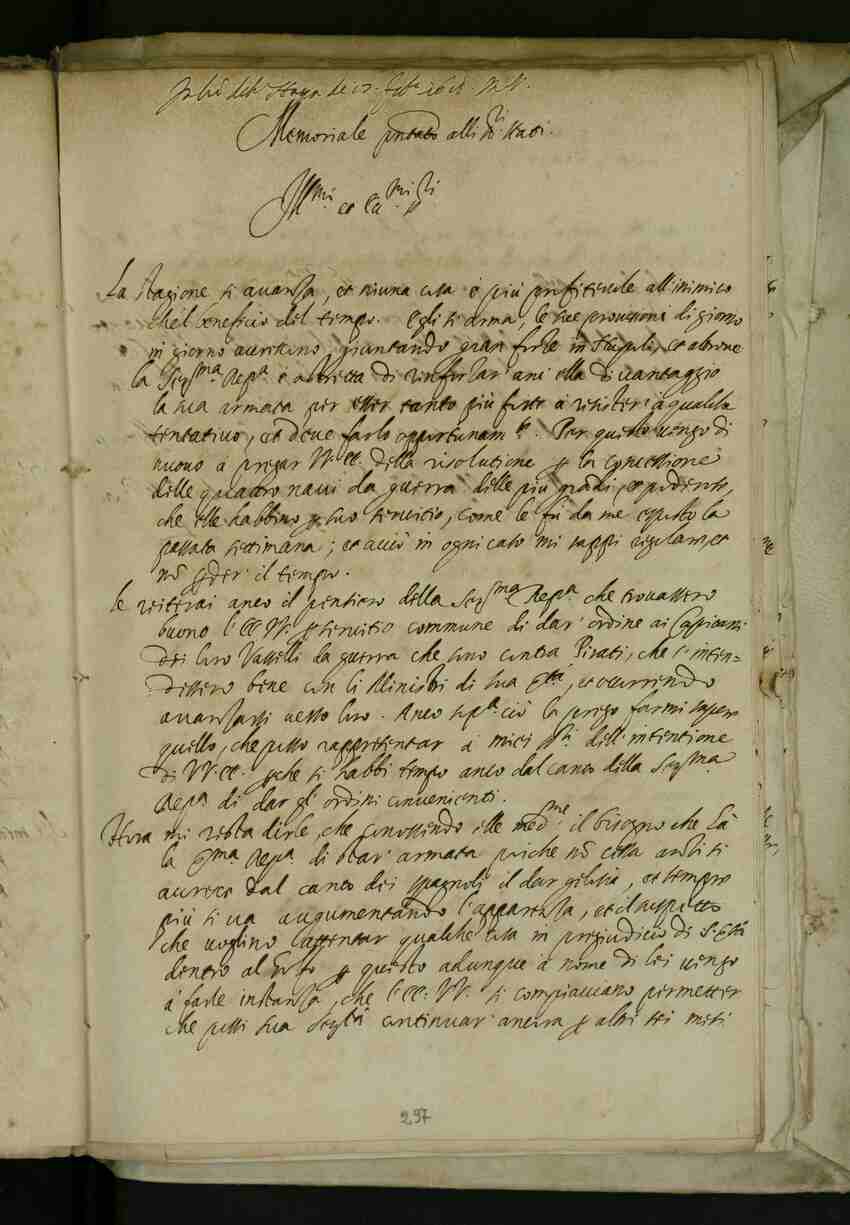 dell' Haya de 17
Memoriale pntato alli SSri Stati.
Illmi et Ecc.mi SSri
La stagione si avanza, et niuna cosa è più profittevole all'inimico
che'l beneficio del tempo. Egli si arma, le sue provisioni di giorno
in giorno accrescono, giuntando gran forze in Napoli, et altrove
la Serma Repa è astretta di rinforzar anci ella di vantaggio
la sua armata per esser tanto più forte à resister à qualche
tentativo, et deve farlo opportunam.te. Per questo vengo di
nuovo à pregar VV. EE. della risolutione p la concessione
delle quattro navi da guerra delle più grandi, et potenti,
che elle habbino p suo servitio, come le fù da me esposto la
passata settimana; et acciò in ogni caso mi sappi regolare, et
nõ pder il tempo.
Le reiterai anco il pensiero della Serma Repa che trovassero
buono l'EE. VV. p servitio commune di dar ordine ai Capitani
dei loro Vasselli da guerra che sono contra Pirati, che s'inten-
dessero bene con li Ministri di sua Stà, et occorrendo
avanzarsi verso loro. Anco sopa ciò la prego farmi saper
quello, che posso rappresentar à miei SSri dell'intentione
di VV. EE. pche si habbi tempo anco dal canto della Serma
Repa di dar gl'ordini convenienti.
Hora mi resta dirle, che conoscendo elle medme il bisogno che hà
la Sma Repa di star armata poiche nõ cessa anzi si
accresce dal canto dei Spagnoli il dar gelosia, et sempre
più si va augumentando l'apparenza, et il sospetto
che voglino attentar qualche cosa in pregiudicio di S. Stà
dentro al Golfo p questo adunque à nome di lei vengo
à farle instanza, che l'EE: VV. si compiacciano permetter
che possi sua Sertà continuar ancora p altri sei mesi
297